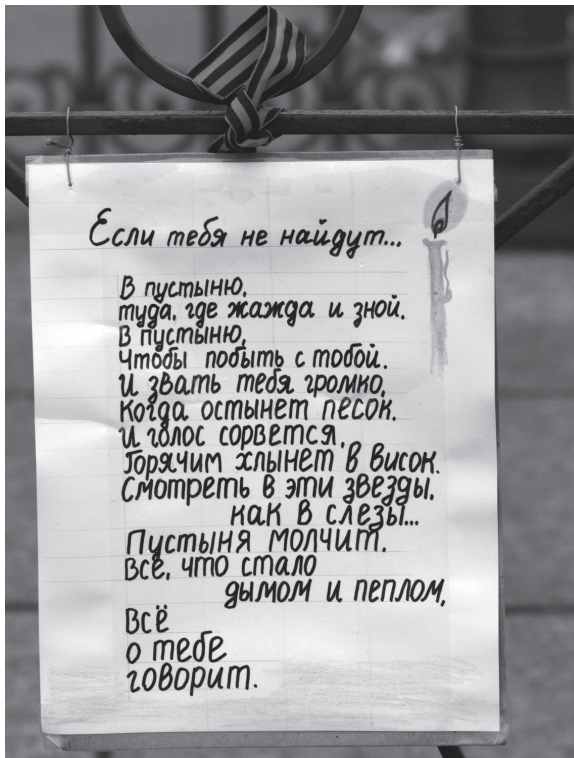 Если тебя не найдут...
В пустыню,
туда, где жажда и зной.
В пустыню,
Чтобы побыть с тобой.
И звать тебя громко,
Когда остынет песок.
И голос сорвется,
Горячим хлынет в висок.
Смотреть в эти звезды,
как в слезы...
Пустыня молчит.
Всё, что стало
дымом и пеплом,
Всё
о тебе
говорит.